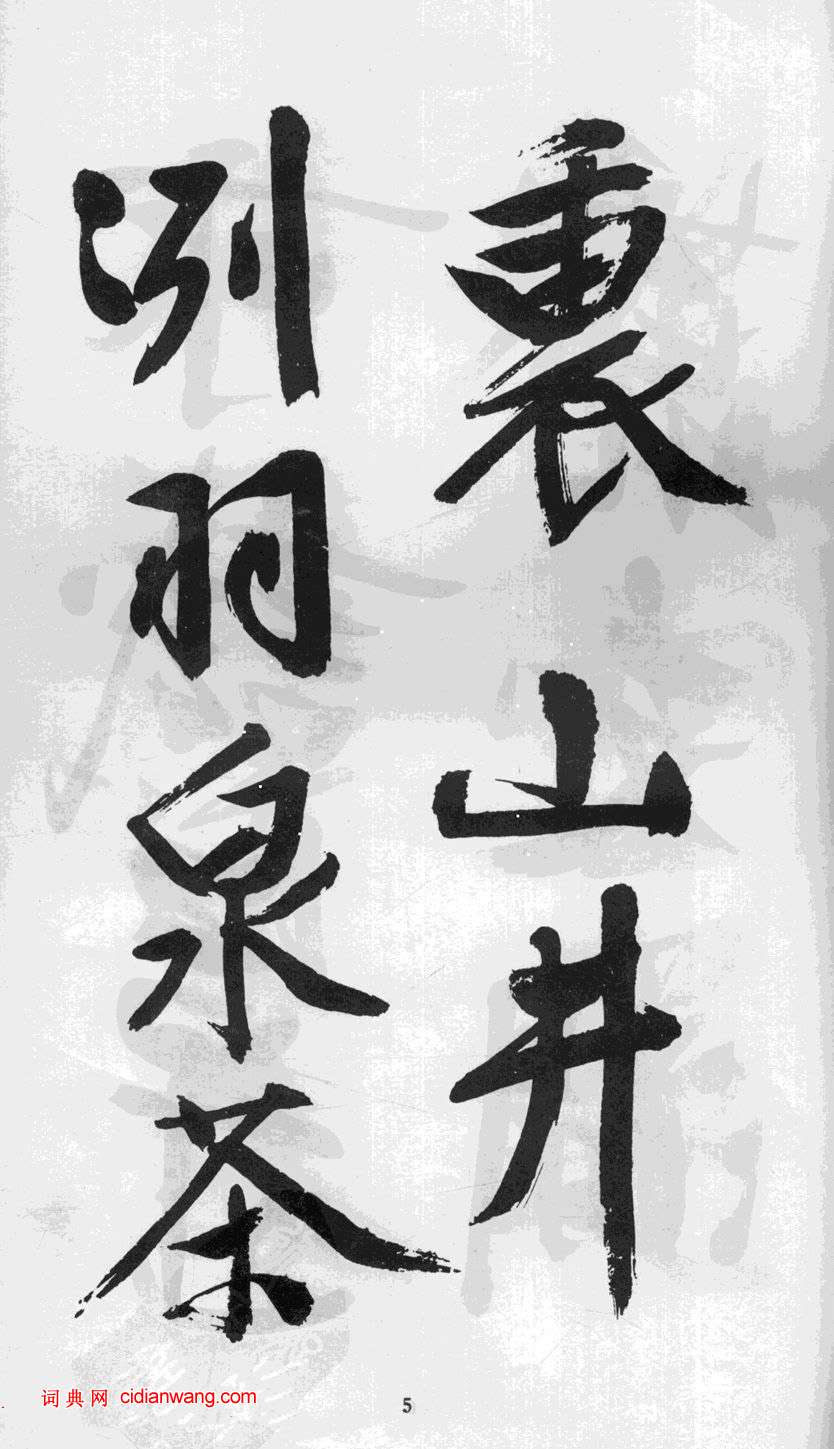 裏山井
冽羽泉茶
词典网 cidianwang.com
5